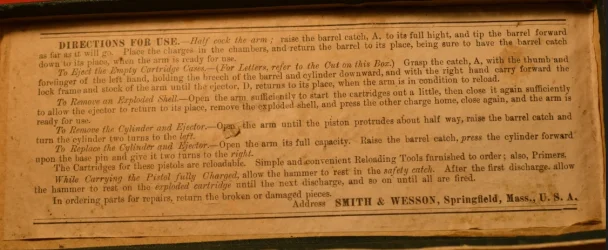 DIRECTIONS FOR USE.—Half cock the arm; raise the barrel catch, A, to its full hight, and tip the barrel forward
as far as it will go. Place the charges in the chambers, and return the barrel to its place, being sure to have the barrel catch
down to its place, when the arm is ready for use.
To Eject the Empty Cartridge Cases.—(For Letters, refer to the Cut on this Box.) Grasp the catch, A, with the thumb and
forefinger of the left hand, holding the breech of the barrel and cylinder downward, and with the right hand carry forward the
lock frame and stock of the arm until the ejector, D, returns to its place, when the arm is in condition to reload.
To Remove an Exploded Shell.—Open the arm sufficiently to start the cartridges out a little, then close it again sufficiently
to allow the ejector to return to its place, remove the exploded shell, and press the other charge home, close again, and the arm is
ready for use.
To Remove the Cylinder and Ejector.—Open the arm until the piston protrudes about half way, raise the barrel catch and
turn the cylinder two turns to the left.
To Replace the Cylinder and Ejector.—Open the arm its full capacity. Raise the barrel catch, press the cylinder forward
upon the base pin and give it two turns to the right.
The Cartridges for these pistols are reloadable. Simple and convenient Reloading Tools furnished to order; also, Primers.
While Carrying the Pistol fully Charged, allow the hammer to rest in the safety catch. After the first discharge, allow
the hammer to rest on the exploded cartridge until the next discharge, and so on until all are fired.
In ordering parts for repairs, return the broken or damaged pieces.
Address SMITH & WESSON, Springfield, Mass., U. S. A.